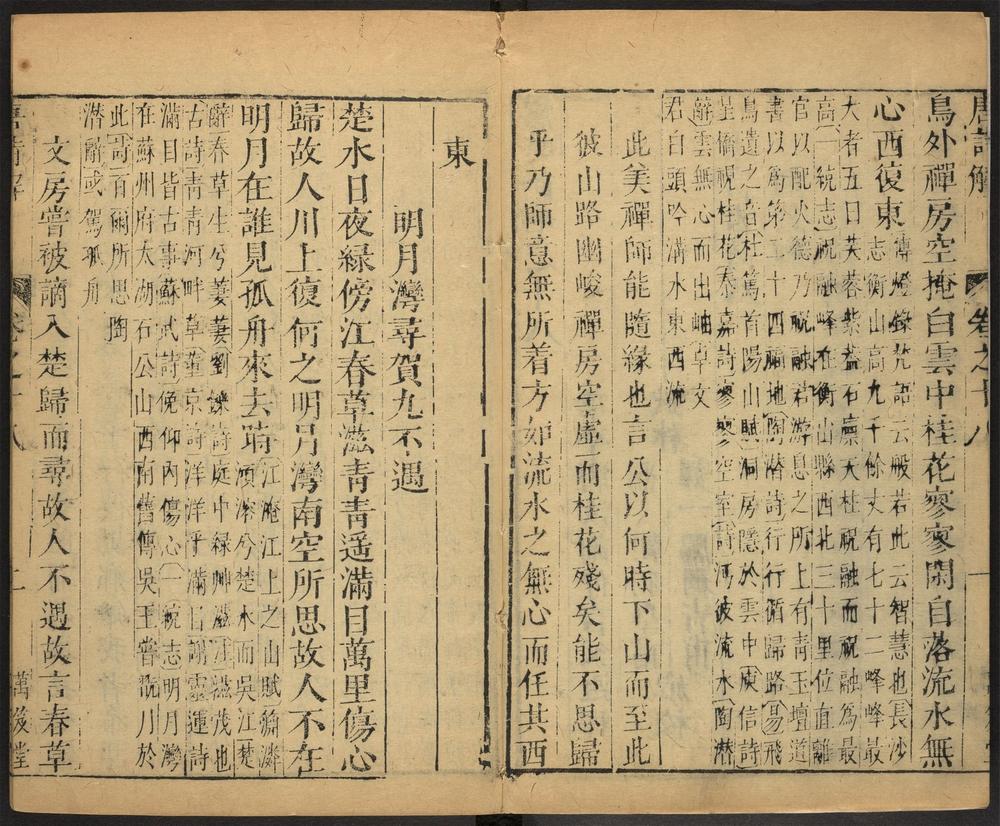 唐詩解 卷之十八 一 堂
鳥外禪房空掩白雲中桂花寥寥閑自落流水無
心西復東
傳燈錄梵語云般若此云智慧也長沙
志衡山高九千餘丈有七十二峰峰最
大者五曰芙蓉紫蓋石廩天柱祝融而祝融為最
高一統志祝融峰在衡山縣西北三十里位直離
官以配火德乃祝融君游息之所上有青玉壇道
書以為第二十四福地陶潛詩行行循歸路易飛
鳥遺之音杜篤首陽山賦洞房隱於雲中庾信詩
橋視桂花秦嘉詩寥寥空室詩彼流水陶潛
辭雲無心而出岫卓文
君白頭吟溝水東西流
此美禪師能隨緣也言公以何時下山而至此
彼山路幽峻禪房空虛而桂花殘矣能不思歸
乎乃師意無所着方如流水之無心而任其西
東
明月灣尋賀九不遇
楚水日夜緑傍江春草滋青青遥滿目萬里傷心
歸故人川上復何之明月灣南空所思故人不在
明月在誰見孤舟來去時
江淹江上之山賦潏
澒溶兮楚水而吳江楚
辭春草生兮萋萋劉鑠詩庭中緑艸滋滋茂也
古詩青青河畔草董京詩洋洋乎滿目謝靈運詩
滿目皆古事蘇武詩俛仰內傷心一統志明月灣
在蘇州府太湖石公山西南舊傳吳王嘗翫月於
此詩百爾所思陶
潛辭或駕孤舟
文房嘗被謫入楚歸而尋故人不遇故言春草
唐詩解 卷之十八 二 萬笈堂